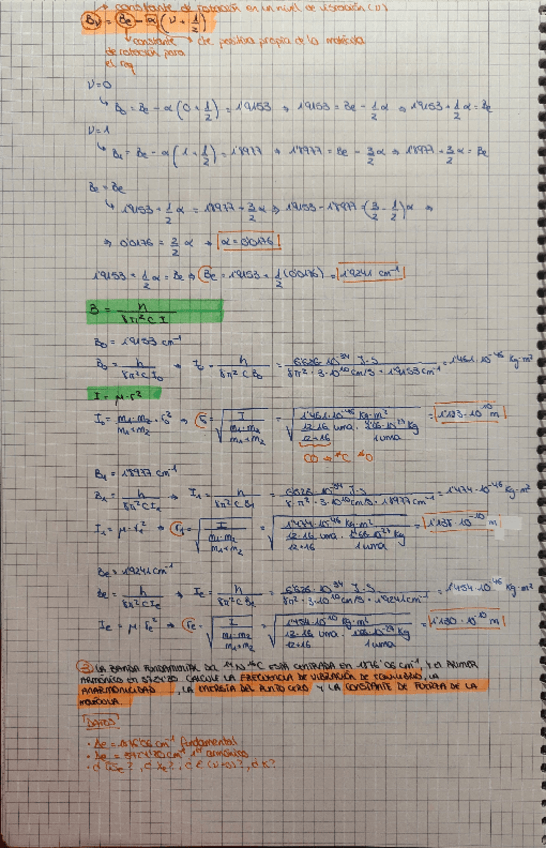 constante de rotación en un nivel de vibración (v)
Bv = Be - α (v + 1/2)
constante de rotación para el req
cte positiva propia de la molécula
v=0
↳ B0 = Be - α (0 + 1/2) = 1'9153 → 1'9153 = Be - 1/2 α → 1'9153 + 1/2 α = Be
v=1
↳ B1 = Be - α (1 + 1/2) = 1'8977 → 1'8977 = Be - 3/2 α → 1'8977 + 3/2 α = Be
Be = Be
↳ 1'9153 + 1/2 α = 1'8977 + 3/2 α → 1'9153 - 1'8977 = (3/2 - 1/2) α →
→ 0'0176 = 2/2 α → α = 0'0176
1'9153 + 1/2 α = Be → Be = 1'9153 + 1/2 (0'0176) = 1'9241 cm⁻¹
B = h / 8π² c I
B0 = 1'9153 cm⁻¹
B0 = h / 8π² c I0 → I0 = h / 8π² c B0 = 6'626·10⁻³⁴ J·s / 8π²·3·10¹⁰ cm/s·1'9153 cm⁻¹ = 1'461·10⁻⁴⁶ kg·m²
I = μ·r²
I0 = m1·m2 / m1+m2 · r0² → r0 = √( I / (m1·m2 / m1+m2) ) = √( 1'461·10⁻⁴⁶ kg·m² / (12·16 / 12+16 uma · 1'66·10⁻²⁷ kg / 1 uma) ) = 1'133·10⁻¹⁰ m
CO → ¹²C ¹⁶O
B1 = 1'8977 cm⁻¹
B1 = h / 8π² c I1 → I1 = h / 8π² c B1 = 6'626·10⁻³⁴ J·s / 8·π²·3·10¹⁰ cm/s·1'8977 cm⁻¹ = 1'474·10⁻⁴⁶ kg·m²
I1 = μ·r1² → r1 = √( I / (m1·m2 / m1+m2) ) = √( 1'474·10⁻⁴⁶ kg·m² / (12·16 / 12+16 uma · 1'66·10⁻²⁷ kg / 1 uma) ) = 1'138·10⁻¹⁰ m
Be = 1'9241 cm⁻¹
Be = h / 8π² c Ie → Ie = h / 8π² c Be = 6'626·10⁻³⁴ J·s / 8π²·3·10¹⁰ cm/s·1'9241 cm⁻¹ = 1'454·10⁻⁴⁶ kg·m²
Ie = μ re² → re = √( I / (m1·m2 / m1+m2) ) = √( 1'454·10⁻⁴⁶ kg·m² / (12·16 / 12+16 uma · 1'66·10⁻²⁷ kg / 1 uma) ) = 1'130·10⁻¹⁰ m
③ LA BANDA FUNDAMENTAL DEL ESTÁ CENTRADA EN 1876'06 cm⁻¹, Y EL PRIMER
ARMÓNICO EN CALCULE LA FRECUENCIA DE VIBRACIÓN DE EQUILIBRIO, LA
ANARMONICIDAD, LA ENERGÍA DEL PUNTO CERO Y LA CONSTANTE DE FUERZA DE LA
MOLÉCULA.
DATOS
· 1876'06 cm⁻¹ fundamental
· cm⁻¹ 1er armónico
· ¿ω̄e?, ¿xe?, ¿E(v=0)?, ¿K?